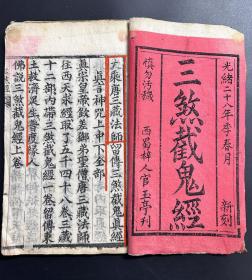 光緒二十八年季春月 新刻
三煞截鬼經
慎勿污穢
西蜀梓人官玉亭刊
大乘唐三藏法師留傳三煞截鬼真經
真言神咒上中下全部
真崇皇帝欽差御弟聖僧唐三藏法師
往西天求經取了五千四十八卷三藏
十二部內帶三煞截鬼經一卷留傳東
土救濟眾生普度緣人
佛說三煞截鬼經上卷